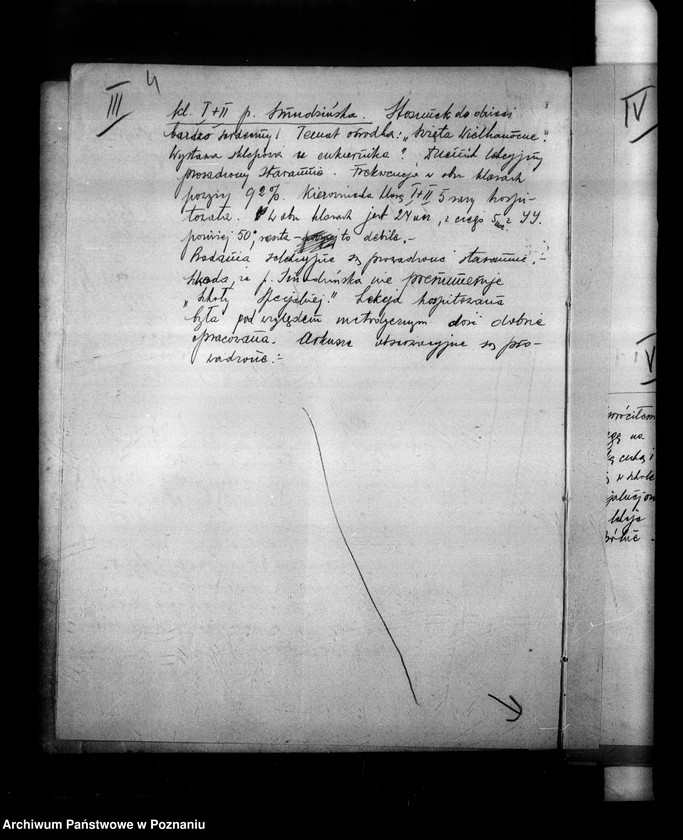 III
4
kl. I+II p. Smudzińska. Stosunek do dzieci
bardzo serdeczny! Temat ośrodka: „Święta Wielkanocne”.
Wystawa sklepowa w cukierni
Dziennik lekcyjny
prowadzony starannie. Frekwencja w obu klasach
powyżej 92%. Kierownik klasę I+II 5 razy hospi-
tował. W obu klasach jest 24 ucz., z czego 5 z I.I.
poniżej 50, reszta – to debile.–
Badania selekcyjne są prowadzone starannie.–
Szkoda, że p. Smudzińska nie prenumeruje
„Szkoły Specjalnej.” Lekcja hospitowana
była pod względem metodycznym dość dobrze
opracowana. Arkusze obserwacyjne są pro-
wadzone.–
IV
V
na
i
w szkole
Archiwum Państwowe w Poznaniu